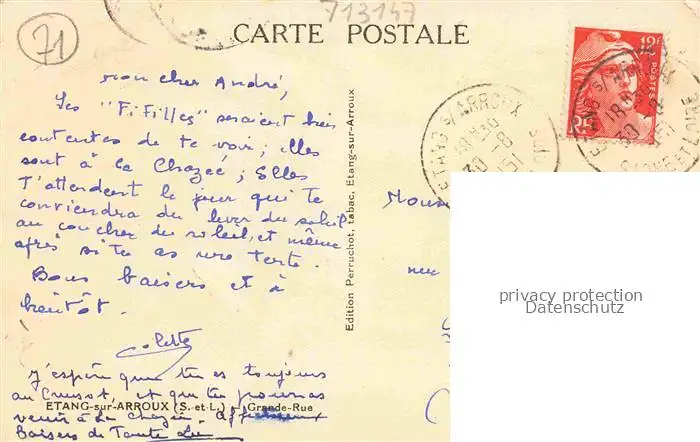 713147
71
CARTE POSTALE
12F
POSTES
RF
ETANG S/ARROUX
18H30
30 -8
1951
SAONE ET LOIRE
mon cher André,
Les "Fifilles" seraient bien
contentes de te voir ; elles
sont à la Chazée ; Elles
t'attendent le jour qui te
conviendra du lever du soleil
au coucher du soleil, et même
après si tu as une tente.
Bons baisers et à
bientôt.
Colette
J'espère que tu es toujours
au Creusot, et que tu pourras
venir à La Chazée. Affectueux
Baisers de Tante Lu
ETANG-sur-ARROUX (S.-et-L.) - Grande-Rue
Edition Perruchot, tabac, Etang-sur-Arroux
Mons
rue
privacy protection
Datenschutz